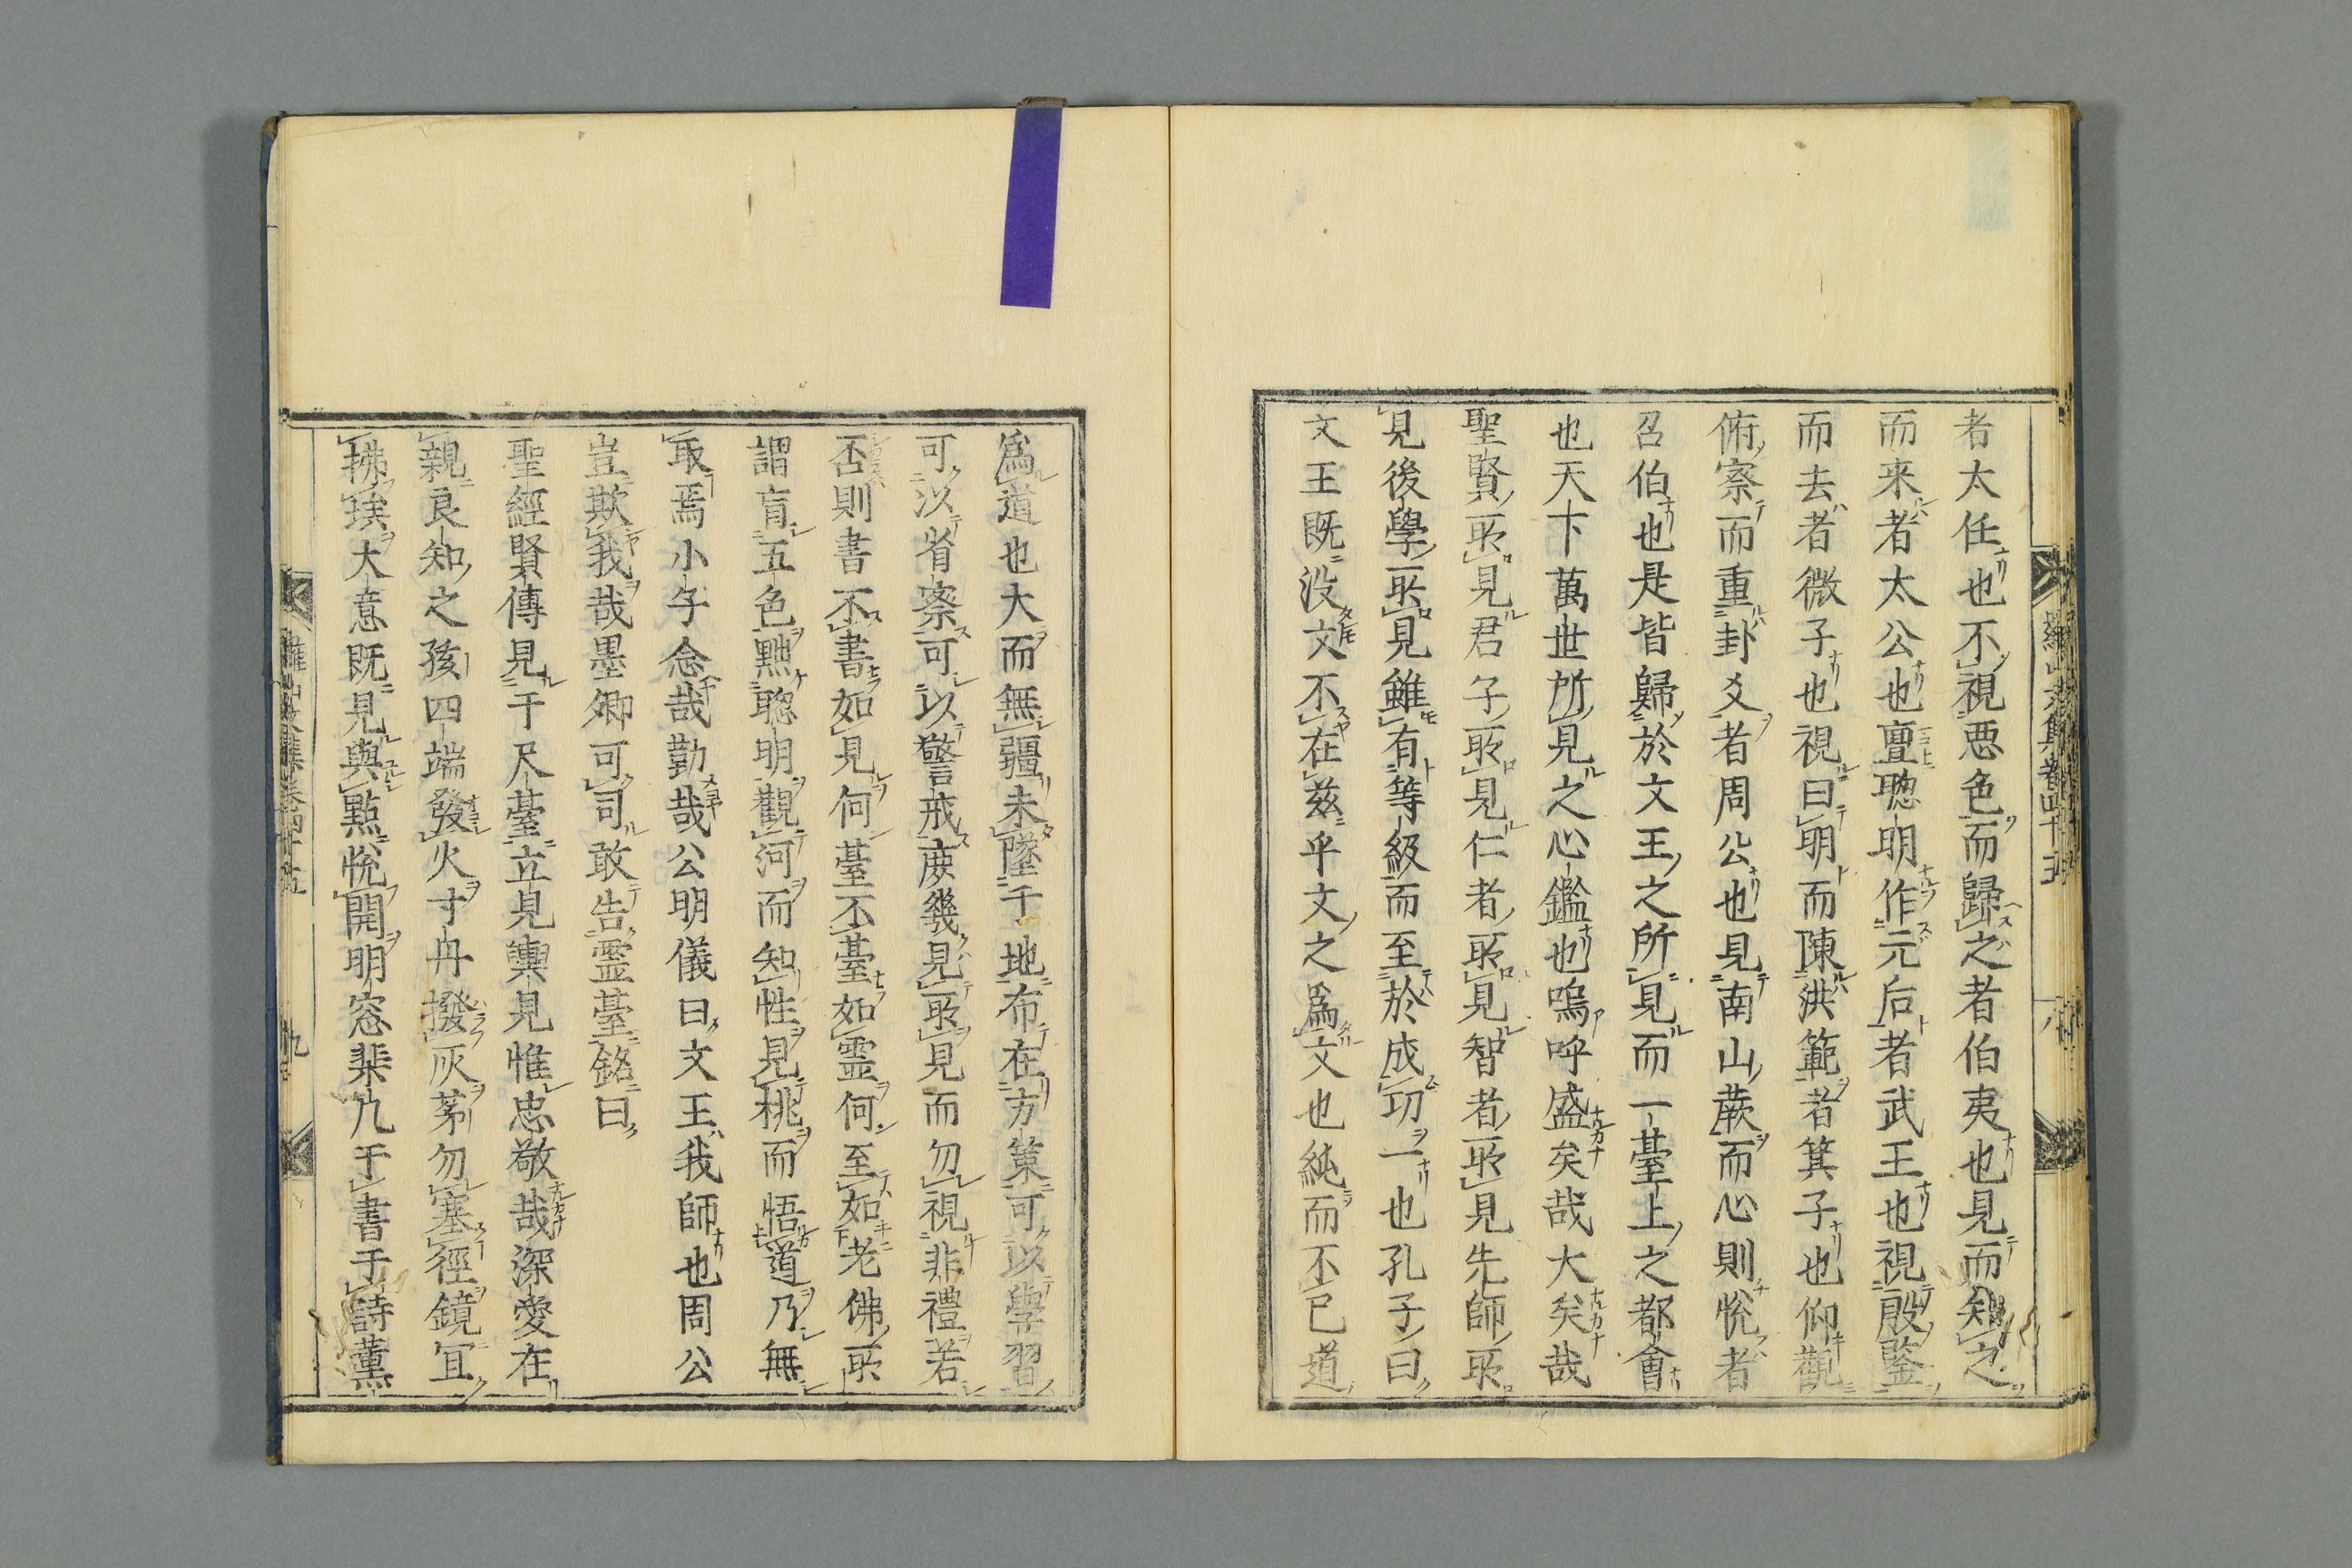 者太任也不視悪色而歸之者伯夷也見而知之
而来者太公也亶聰明作元后者武王也視殷鑒
而去者微子也視曰明而陳洪範者箕子也仰觀
俯察而重卦爻者周公也見南山蕨而心則悅者
召伯也是皆歸於文王之所見而一臺上之都會
也天下萬世所見之心鑑也嗚呼盛矣哉大矣哉
聖賢所見君子所見仁者所見智者所見先師所
見後學所見雖有等級而至於成功一也孔子曰
文王既没文不在茲乎文之爲文也純而不已道
爲道也大而無疆未墜于地布在方策可以學習
可以省察可以警戒庶幾見所見而勿視非禮若
否則書不書如見何臺不臺如霊何至如老佛所
謂盲五色黜聰明觀河而知性見桃而悟道乃無
取焉小子念哉勤哉公明儀曰文王我師也周公
豈欺我哉墨卿可司敢告霊臺銘曰
聖經賢傳見于尺臺立見輿見惟忠敬哉深愛在
親良知之孩四端發火寸丹撥灰茅勿塞徑鏡冝
拂埃大意既見與點悅開明窓棐几于書于詩薫
羅山文集卷四十五
八
羅山文集卷四十五
九